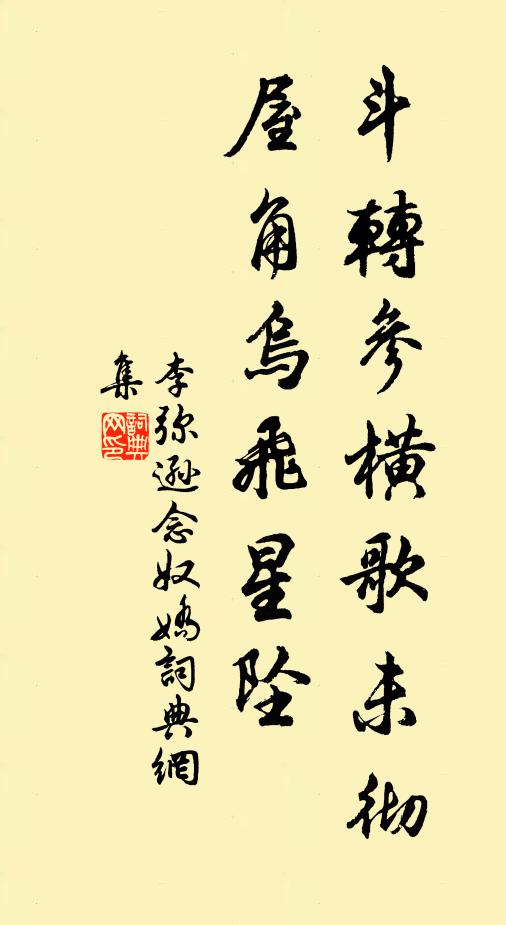 斗轉參橫歌未彻
屋角烏飛星坠
李弥遜念奴嬌詞典網
集
詞典
网印